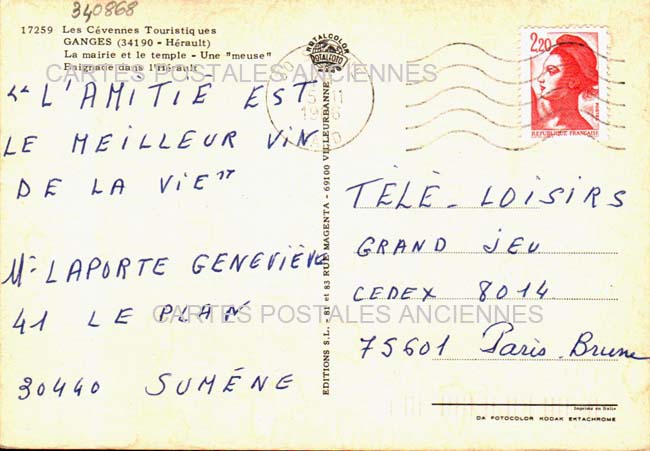 340868
17259 Les Cévennes Touristiques
GANGES (34190 - Hérault)
La mairie et le temple - Une "meuse"
Baignade dans l'Hérault
CARTES POSTALES ANCIENNES
"L'AMITIE EST
LE MEILLEUR VIN
DE LA VIE"
Me LAPORTE GENEVIÈVE
41 LE PLAN
30440 SUMÉNE
EDITIONS S.L. - 81 et 83 RUE MAGENTA - 69100 VILLEURBANNE
ROTALCOLOR
ROTALFOTO
GARD
2,20
REPUBLIQUE FRANÇAISE
TÈLÈ-LOISIRS
GRAND JEU
CEDEX 8014
75601 Paris-Brune
CARTES POSTALES ANCIENNES
Imprimé en Italie
DA FOTOCOLOR KODAK EKTACHROME